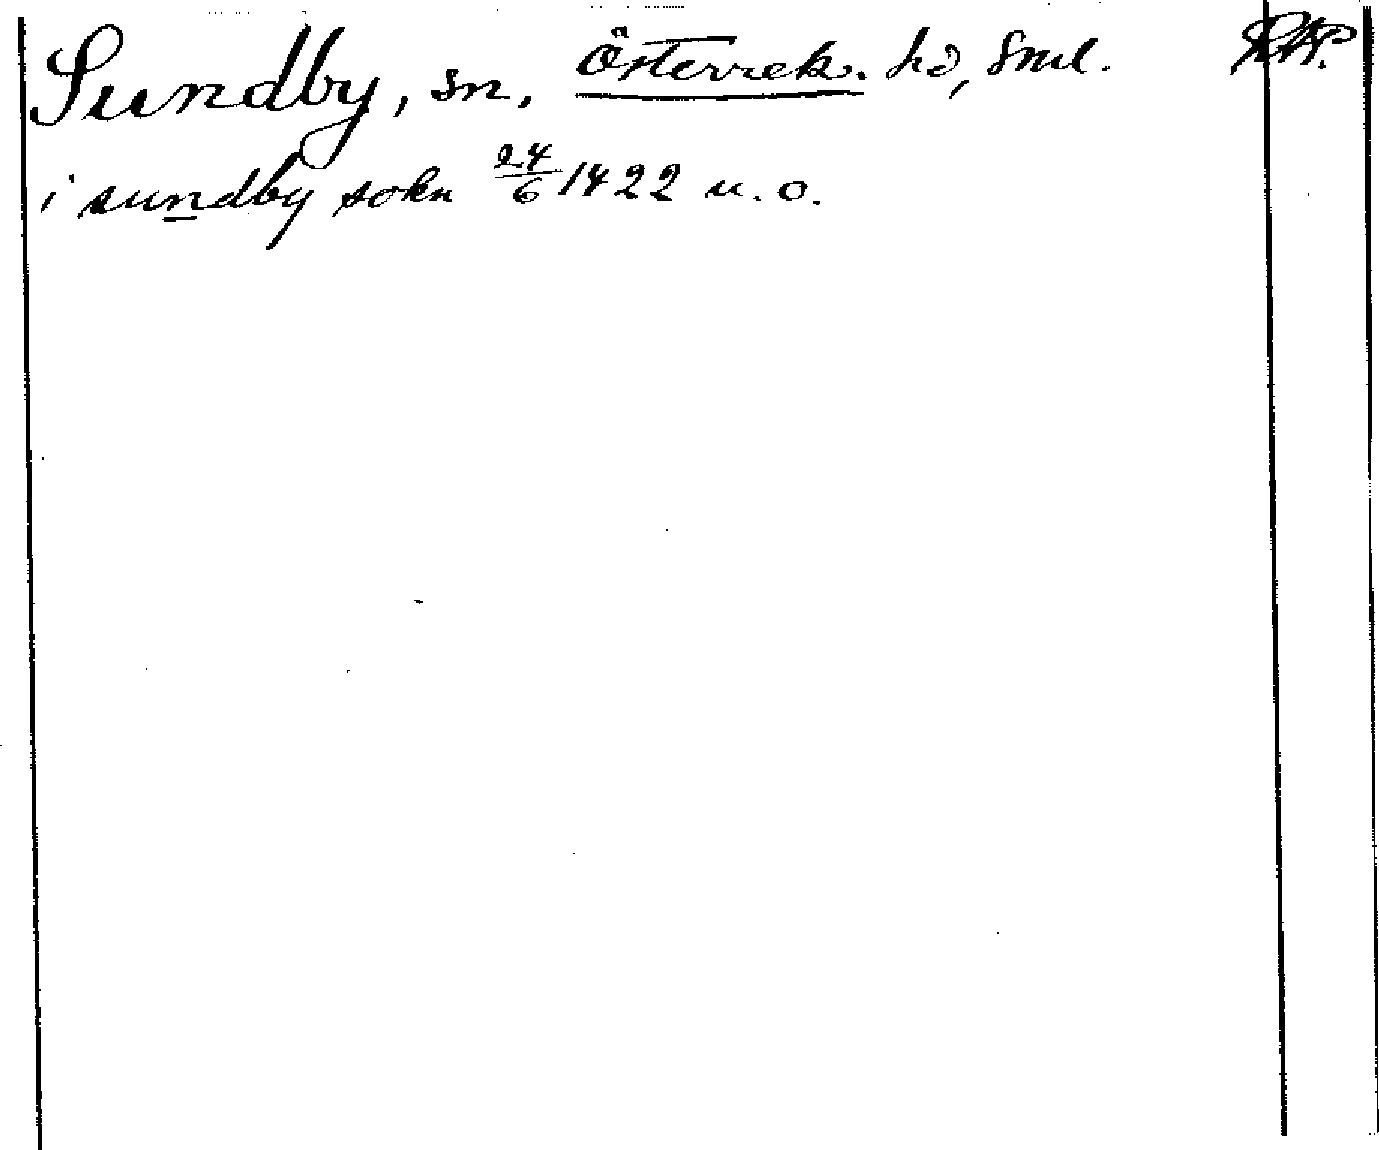 Sundby, sn, Österrek. hd, Sml.
i sundby sokn 24/6 1422 u. o.